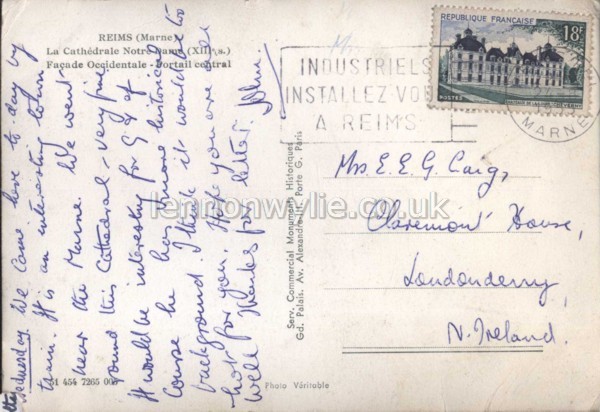 REIMS (Marne)
La Cathédrale Notre-Dame (XIIIᵉ s.)
Façade Occidentale - Portail central
Wednesday. We came here to-day by
train. It is an interesting town
near the Marne. We went
round this Cathedral - very fine
It would be interesting for G of
course he has more historical
background. I think it would be too
hot for you. Hope you are all
well. Thanks for letter. John.
51 454 7265 00
Photo Véritable
Serv. Commercial Monuments Historiques
Gd. Palais. Av. Alexandre III. Porte G. Paris
INDUSTRIELS
INSTALLEZ-VOUS
A REIMS
MARNE
REPUBLIQUE FRANÇAISE
18F
POSTES
Mrs E. E. G. Cargs
Claremont House,
Londonderry,
N. Ireland.
lennonwylie.co.uk